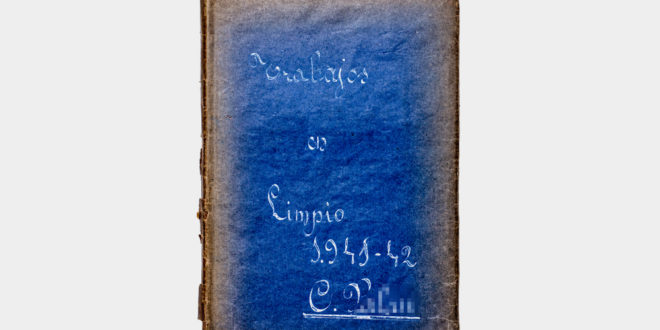 Trabajos
en
Limpio
1.941-42
C.